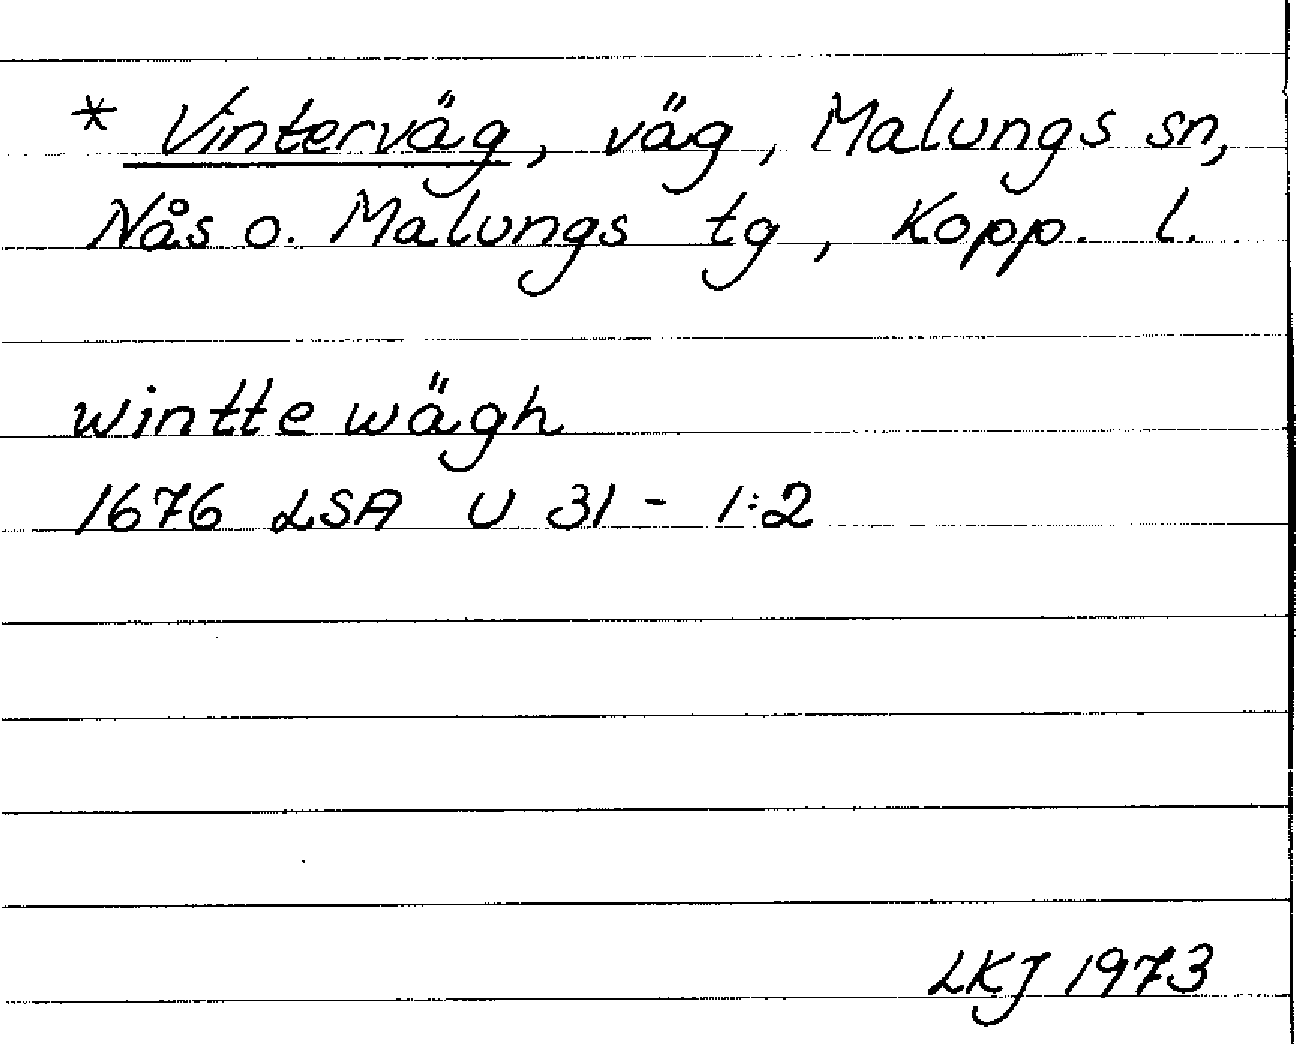 * Vinterväg, väg, Malungs sn,
Nås o. Malungs tg, Kopp. l.
wintte wägh
1676 LSA U 31 - 1:2
LKJ 1973